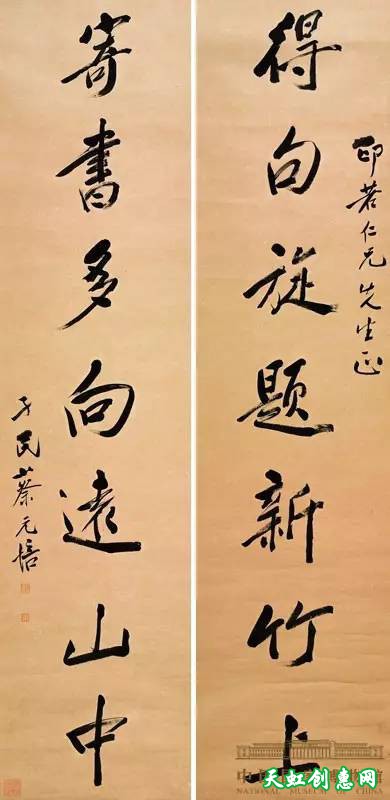 印若仁兄先生正
得句旋題新竹上
寄書多向遠山中
孑民蔡元培
NATIONAL MUSEUM OF CHINA
天虹创惠网